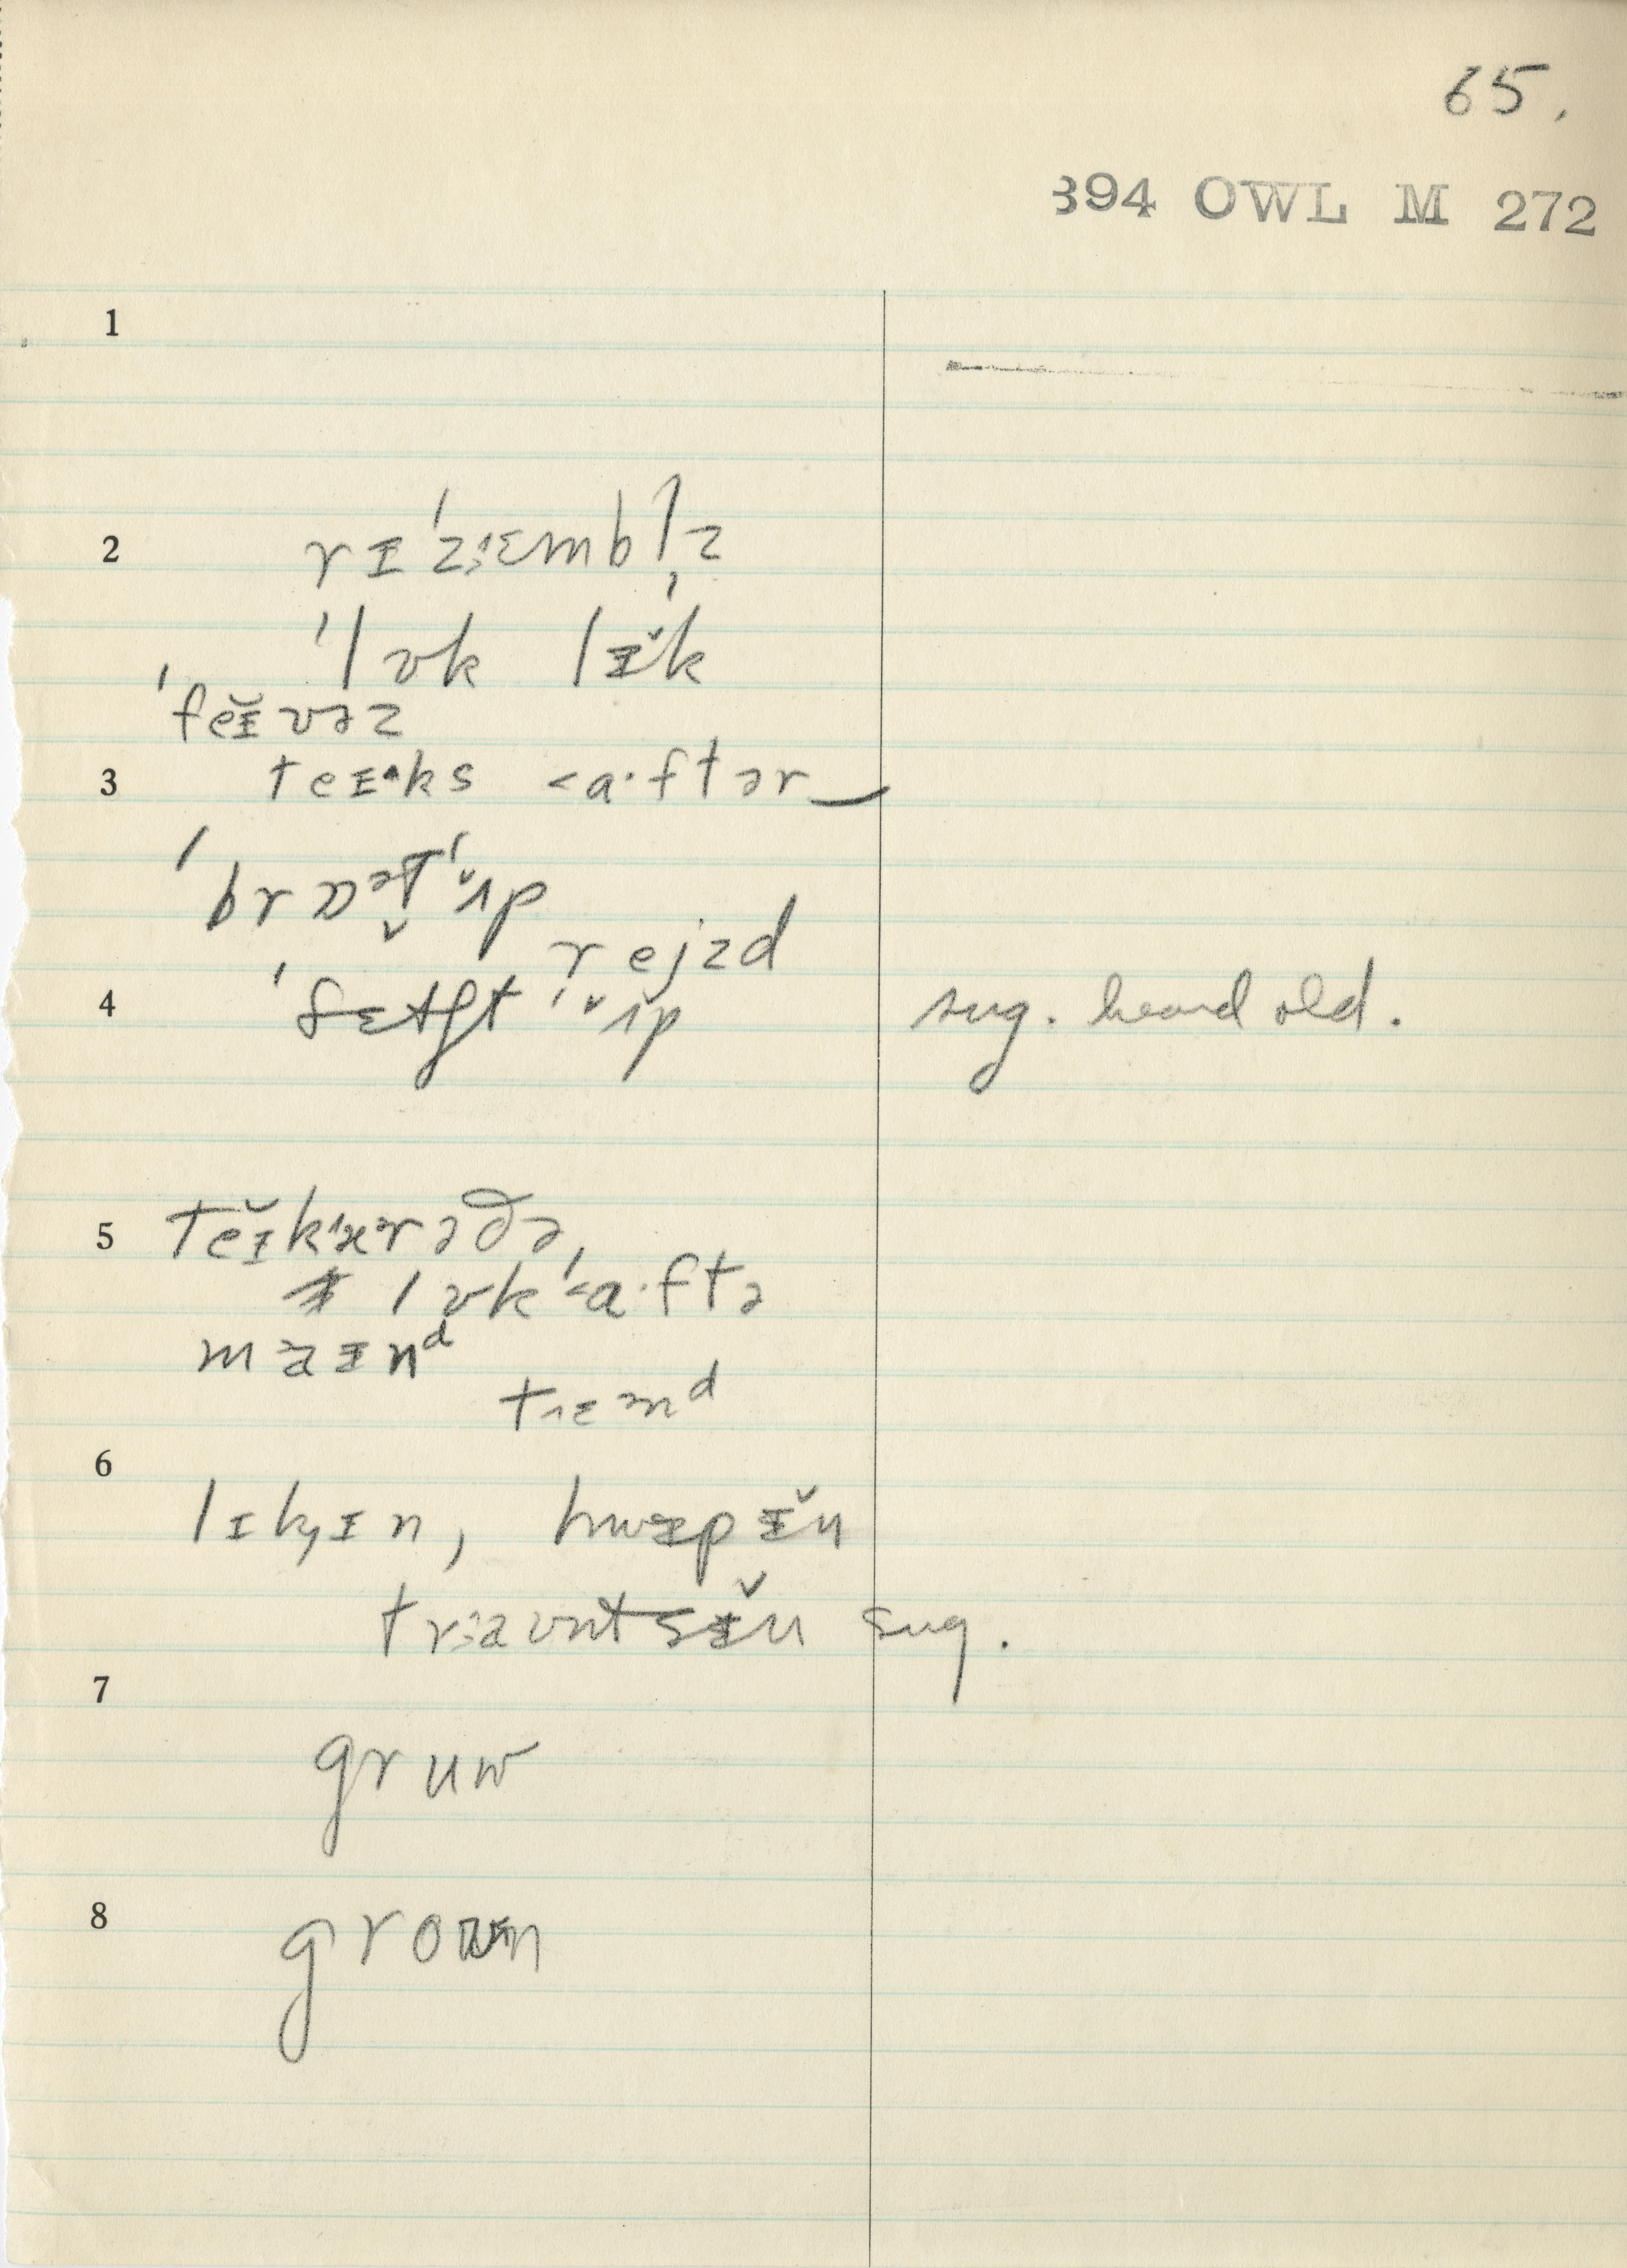 65.
394 OWL M 272
1
2 rɪˈzɛmbl̩z
ˈlʊk lɪ̆k
ˈfeɪ̆vəz
3 teɪks <a·ftər
ˈbrɒətˈʌ̆p
rejzd
4 ˈfɛtʃtˈʌ̆p sug. heard old.
5 teɪ̆kˈkɛrəðə,
lʊkˈ<a·ftə
maɪnᵈ
tɛnᵈ
6
lɪkɪn, hwɪpɪ̆n
traʊntsɪ̆n sug.
7
gruw
8 grown